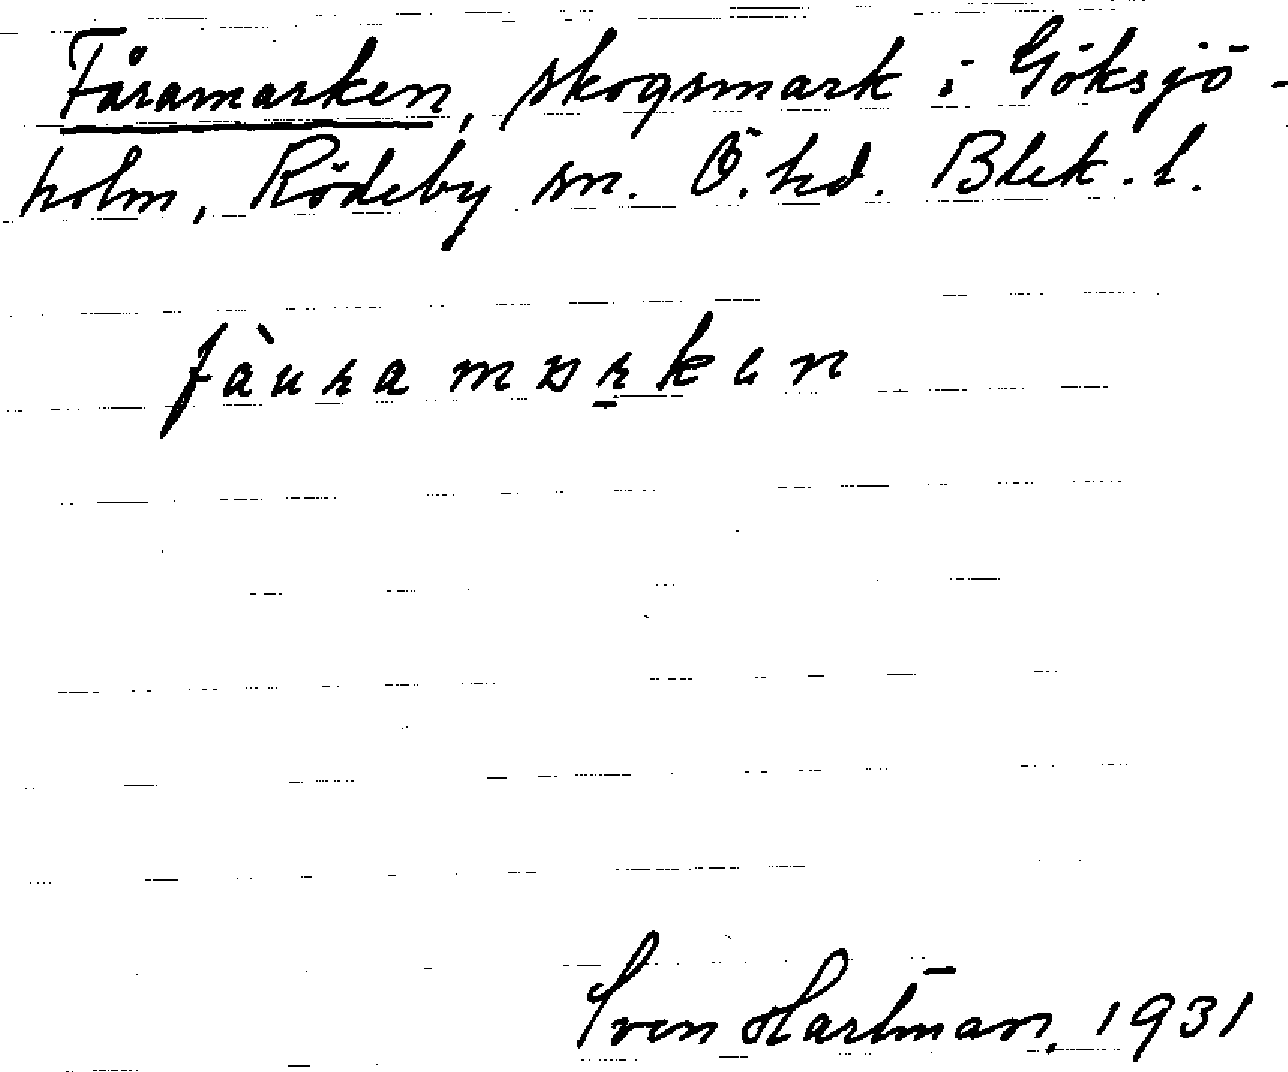 Fåramarken, skogsmark i Göksjö-
holm, Rödeby sn. Ö. hd. Blek. l.
fàuramarken
Sven Hartman, 1931